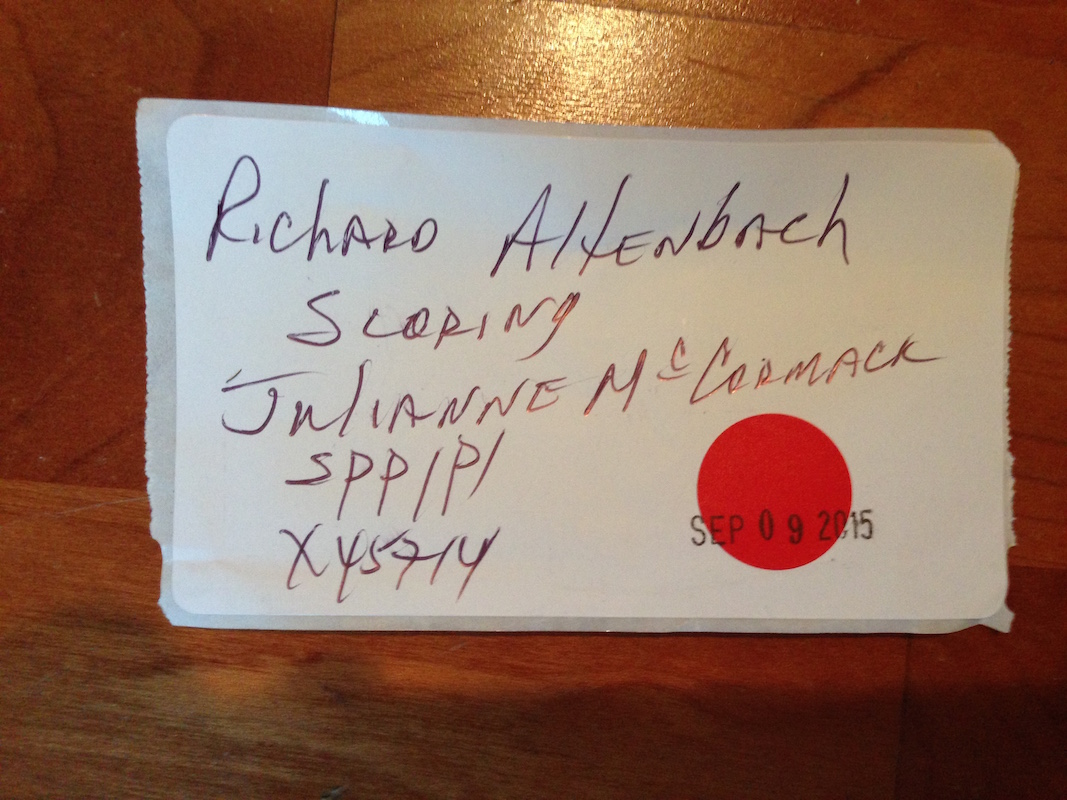 Richard Altenbach
Scoring
Julianne McCormack
SPP/P/
X45714
SEP 09 2015